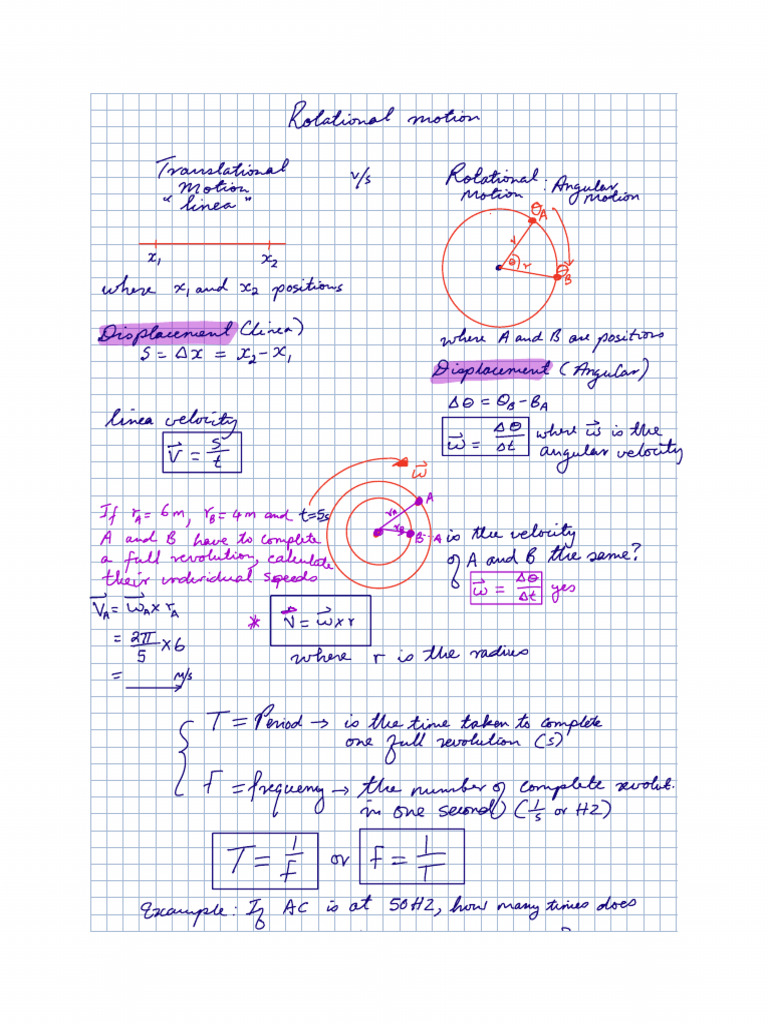 Rotational motion
Translational
Motion
"linea"
v/s
Rotational : Angular
Motion Motion
θA
r
θ
r
θB
x₁ x₂
where x₁ and x₂ positions
where A and B are positions
Displacement (linea)
S = Δx = x₂ - x₁
Displacement (Angular)
Δθ = θB - BA
linea velocity
V⃗ = S/t
w⃗ = Δθ/Δt where w⃗ is the
angular velocity
w⃗
A
rA
rB
B
If rA = 6m, rB = 4m and t=5s
A and B have to complete
a full revolution, calculate
their individual speeds
- is the velocity
of A and B the same?
w⃗ = Δθ/Δt yes
V⃗A = w⃗A x rA
= 2π/5 x 6
= m/s
* V⃗ = w⃗ x r
where r is the radius
T = Period → is the time taken to complete
one full revolution (s)
F = frequency → the number of complete revolut.
in one second) (1/s or HZ)
T = 1/F or F = 1/T
Example: If AC is at 50HZ, how many times does